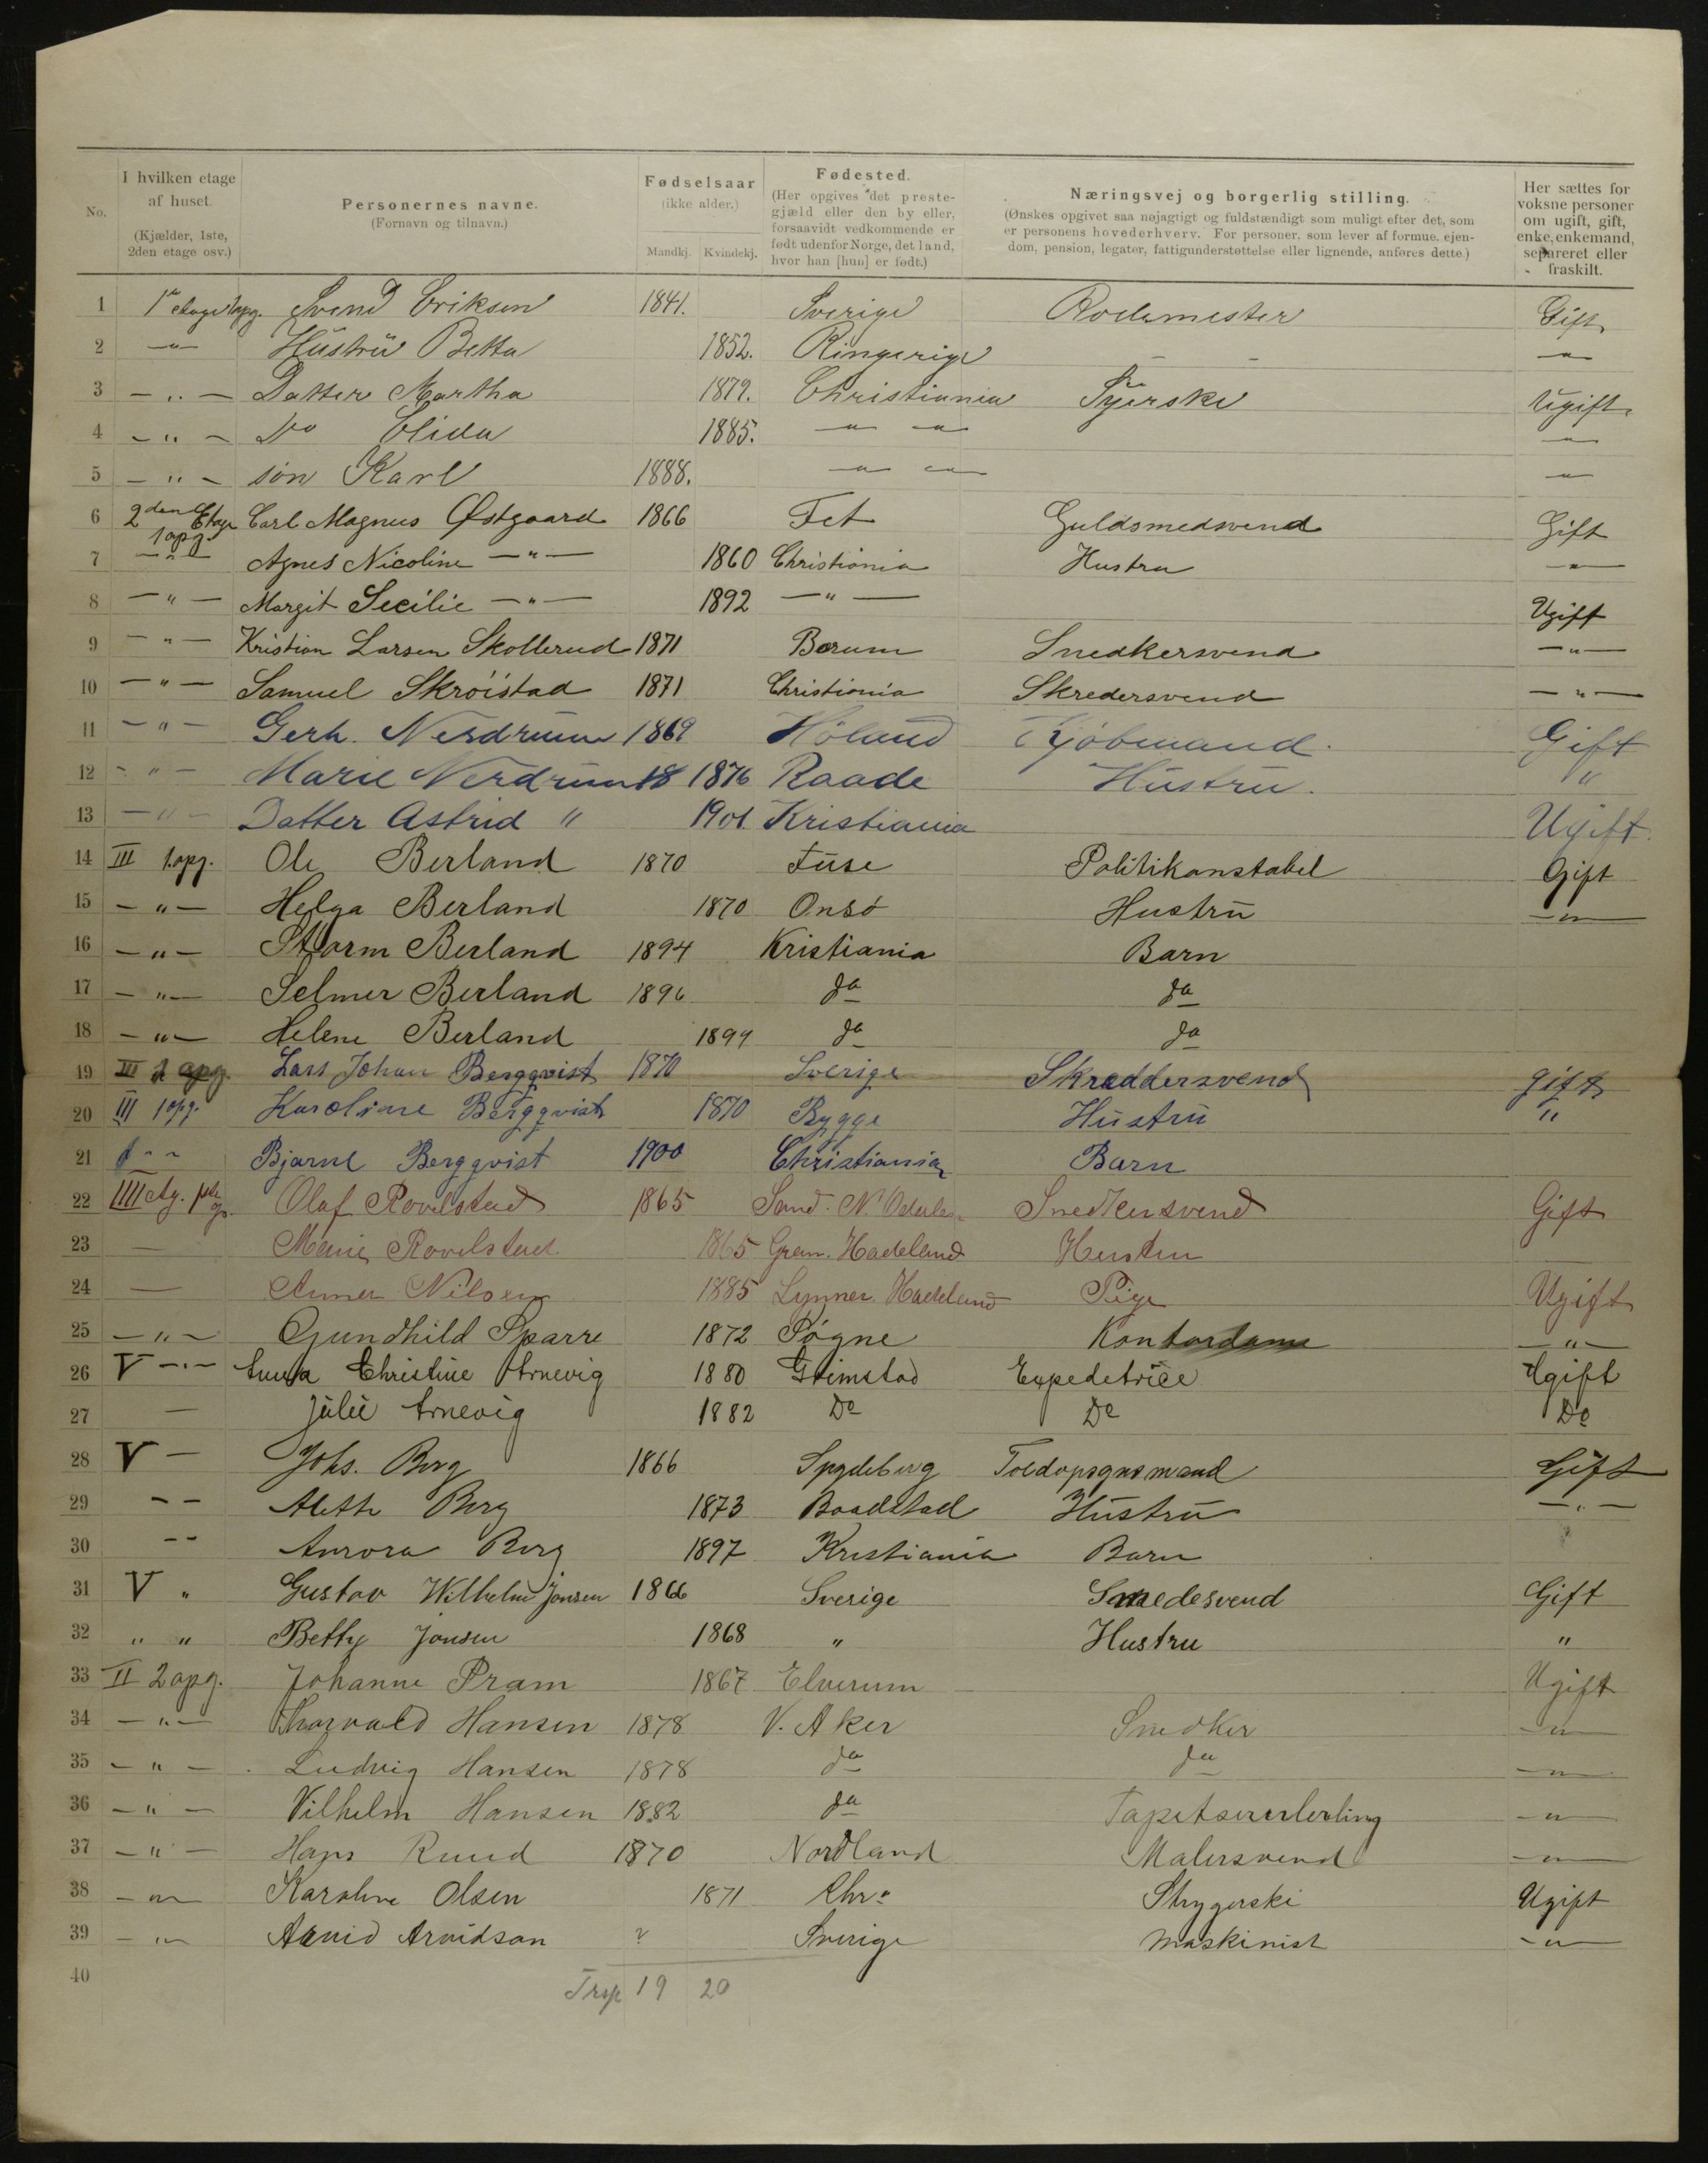 No. | I hvilken etage af huset. (Kjælder, 1ste, 2den etage osv.) | Personernes navne. (Fornavn og tilnavn.) | Fødselsaar (ikke alder.) Mandkj. Kvindekj. | Fødested. (Her opgives det prestegjæld eller den by eller, forsaavidt vedkommende er født udenfor Norge, det land, hvor han [hun] er født.) | Næringsvej og borgerlig stilling. (Ønskes opgivet saa nøjagtigt og fuldstændigt som muligt efter det, som er personens hovederhverv. For personer, som lever af formue, ejendom, pension, legater, fattigunderstøttelse eller lignende, anføres dette.) | Her sættes for voksne personer om ugift, gift, enke, enkemand, separeret eller fraskilt.
1 1ste etage 1 opg. Svend Eriksen 1841. Sverige Rodemester Gift
2 —"— Hustru Betta 1852. Ringerige — — —"—
3 —"— Datter Martha 1879. Christiania Syerske Ugift
4 —"— Do Elida 1885. —"— —"— —"—
5 —"— søn Karl 1888. —"— —"— —"—
6 2den Etage 1 opg. Carl Magnus Østgaard 1866 Fet Guldsmedsvend Gift
7 —"— Agnes Nicoline —"— 1860 Christiania Hustru —"—
8 —"— Margit Secilie —"— 1892 —"— Ugift
9 —"— Kristian Larsen Skollerud 1871 Bærum Snedkersvend —"—
10 —"— Samuel Skröistad 1871 Christiania Skredersvend —"—
11 —"— Gerh. Nerdrum 1869 Höland Kjöbmand. Gift
12 —"— Marie Nerdrum 18 1876 Raade Hustru. "
13 —"— Datter Astrid " 1901. Kristiania Ugift.
14 III 1.opg. Ole Berland 1870 Fuse Politikonstabel Gift
15 —"— Helga Berland 1870 Onsö Hustru —"—
16 —"— Storm Berland 1894 Kristiania Barn
17 —"— Selmer Berland 1896 do do
18 —"— Helene Berland 1899 do do
19 III 1 opg. Lars Johan Bergqvist 1870 Sverige Skraddersvend gift
20 III 1 opg. Karoline Bergqvist 1870 Rygge Hustru "
21 " " Bjarne Bergqvist 1900 Christiania Barn
22 IIII etg. Olaf Rovelstad 1865 Sand. N. Odalen Snedkersvend Gift
23 — Marie Rovelstad 1865 Gran. Hadeland Hustru
24 — Anna Nilsen 1885 Lynner. Hadeland Pige Ugift
25 —"— Gundhild Sparre 1872 Søgne Kontordame —"—
26 V —"— Anna Christine Arnevig 1880 Grimstad Expeditrice Ugift
27 — Julie Arnevig 1882 Do Do Do
28 V — Johs. Berg 1866 Spydeberg Toldopsynsmand Gift
29 — — Aleth Berg 1873 Baadstad Hustru —"—
30 — — Aurora Berg 1897 Kristiania Barn
31 V " Gustav Wilhelm Jonsen 1866 Sverige Smedesvend Gift
32 " " Betty Jonsen 1868 " Hustru "
33 II 2 opg. Johanne Pram 1867 Elverum Ugift
34 —"— Thorvald Hansen 1878 V. Aker Snedker —"—
35 —"— Ludvig Hansen 1878 do do —"—
36 —"— Vilhelm Hansen 1882 do Tapetsererlerling —"—
37 —"— Hans Ruud 1870 Nordland Malersvend —"—
38 —"— Karoline Olsen 1871 Chr.a Strygerske Ugift
39 —"— Arvid Arvidson ? Sverige Maskinist —"—
40
Trsp 19 20